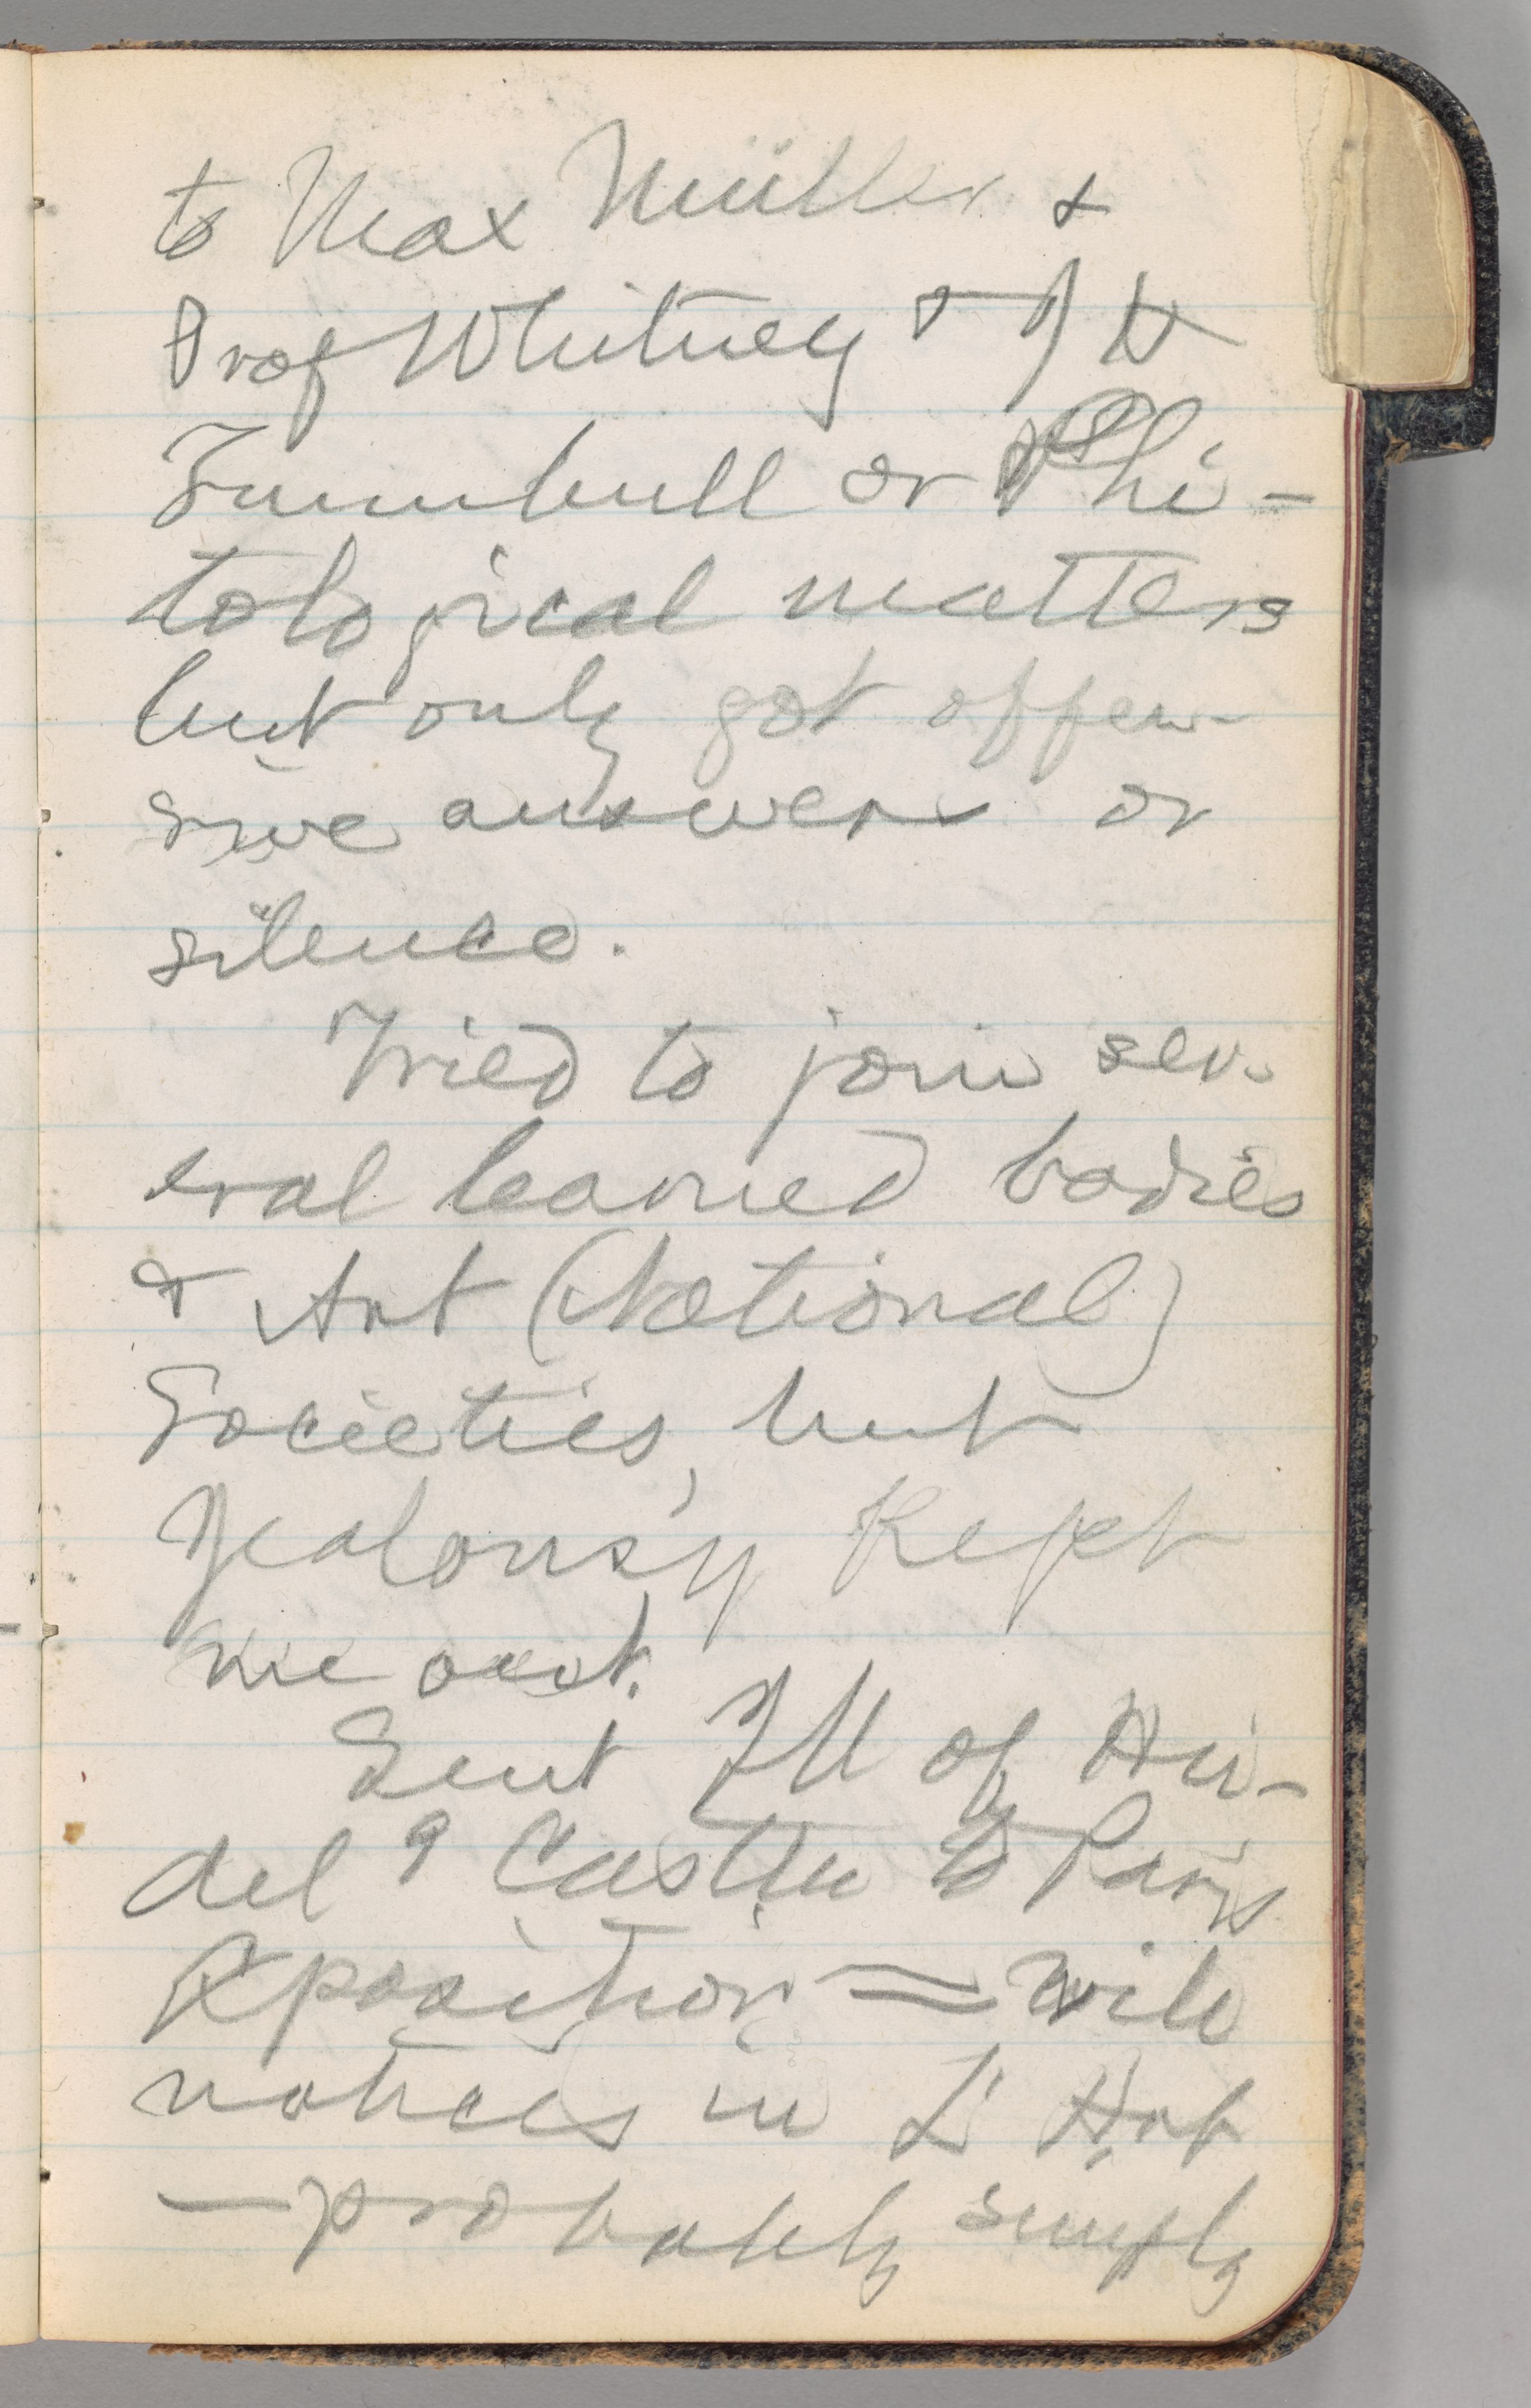 to Max Müller &
Prof Whitney & J H
Trumbull or Phi-
tological matters
but only got offen-
sive answers or
silence.
Tried to join sev-
eral learned bodies
& Art (National)
Societies, but
Jealousy kept
me out.
Sent Ill of Hin-
del Castle to Paris
Xposition = with
notices in L'Art
— probably simply